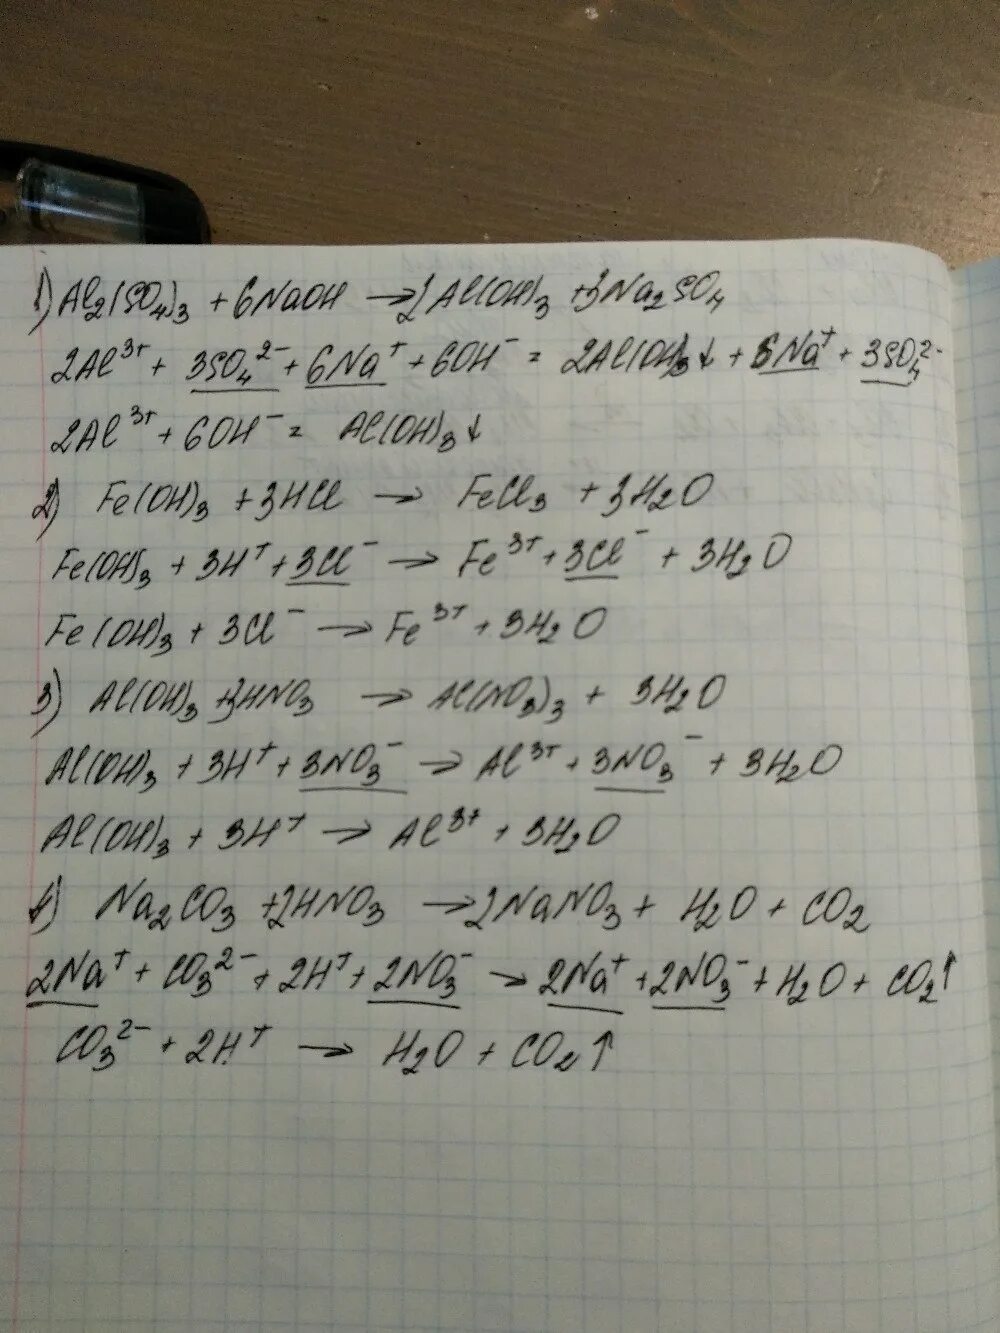 1) Al₂(SO₄)₃ + 6NaOH → 2Al(OH)₃ + 3Na₂SO₄
2Al³⁺ + 3SO₄²⁻ + 6Na⁺ + 6OH⁻ = 2Al(OH)₃↓ + 6Na⁺ + 3SO₄²⁻
2Al³⁺ + 6OH⁻ = Al(OH)₃↓
2) Fe(OH)₃ + 3HCl → FeCl₃ + 3H₂O
Fe(OH)₃ + 3H⁺ + 3Cl⁻ → Fe³⁺ + 3Cl⁻ + 3H₂O
Fe(OH)₃ + 3Cl⁻ → Fe³⁺ + 3H₂O
3) Al(OH)₃ + 3HNO₃ → Al(NO₃)₃ + 3H₂O
Al(OH)₃ + 3H⁺ + 3NO₃⁻ → Al³⁺ + 3NO₃⁻ + 3H₂O
Al(OH)₃ + 3H⁺ → Al³⁺ + 3H₂O
4) Na₂CO₃ + 2HNO₃ → 2NaNO₃ + H₂O + CO₂
2Na⁺ + CO₃²⁻ + 2H⁺ + 2NO₃⁻ → 2Na⁺ + 2NO₃⁻ + H₂O + CO₂↑
CO₃²⁻ + 2H⁺ → H₂O + CO₂↑